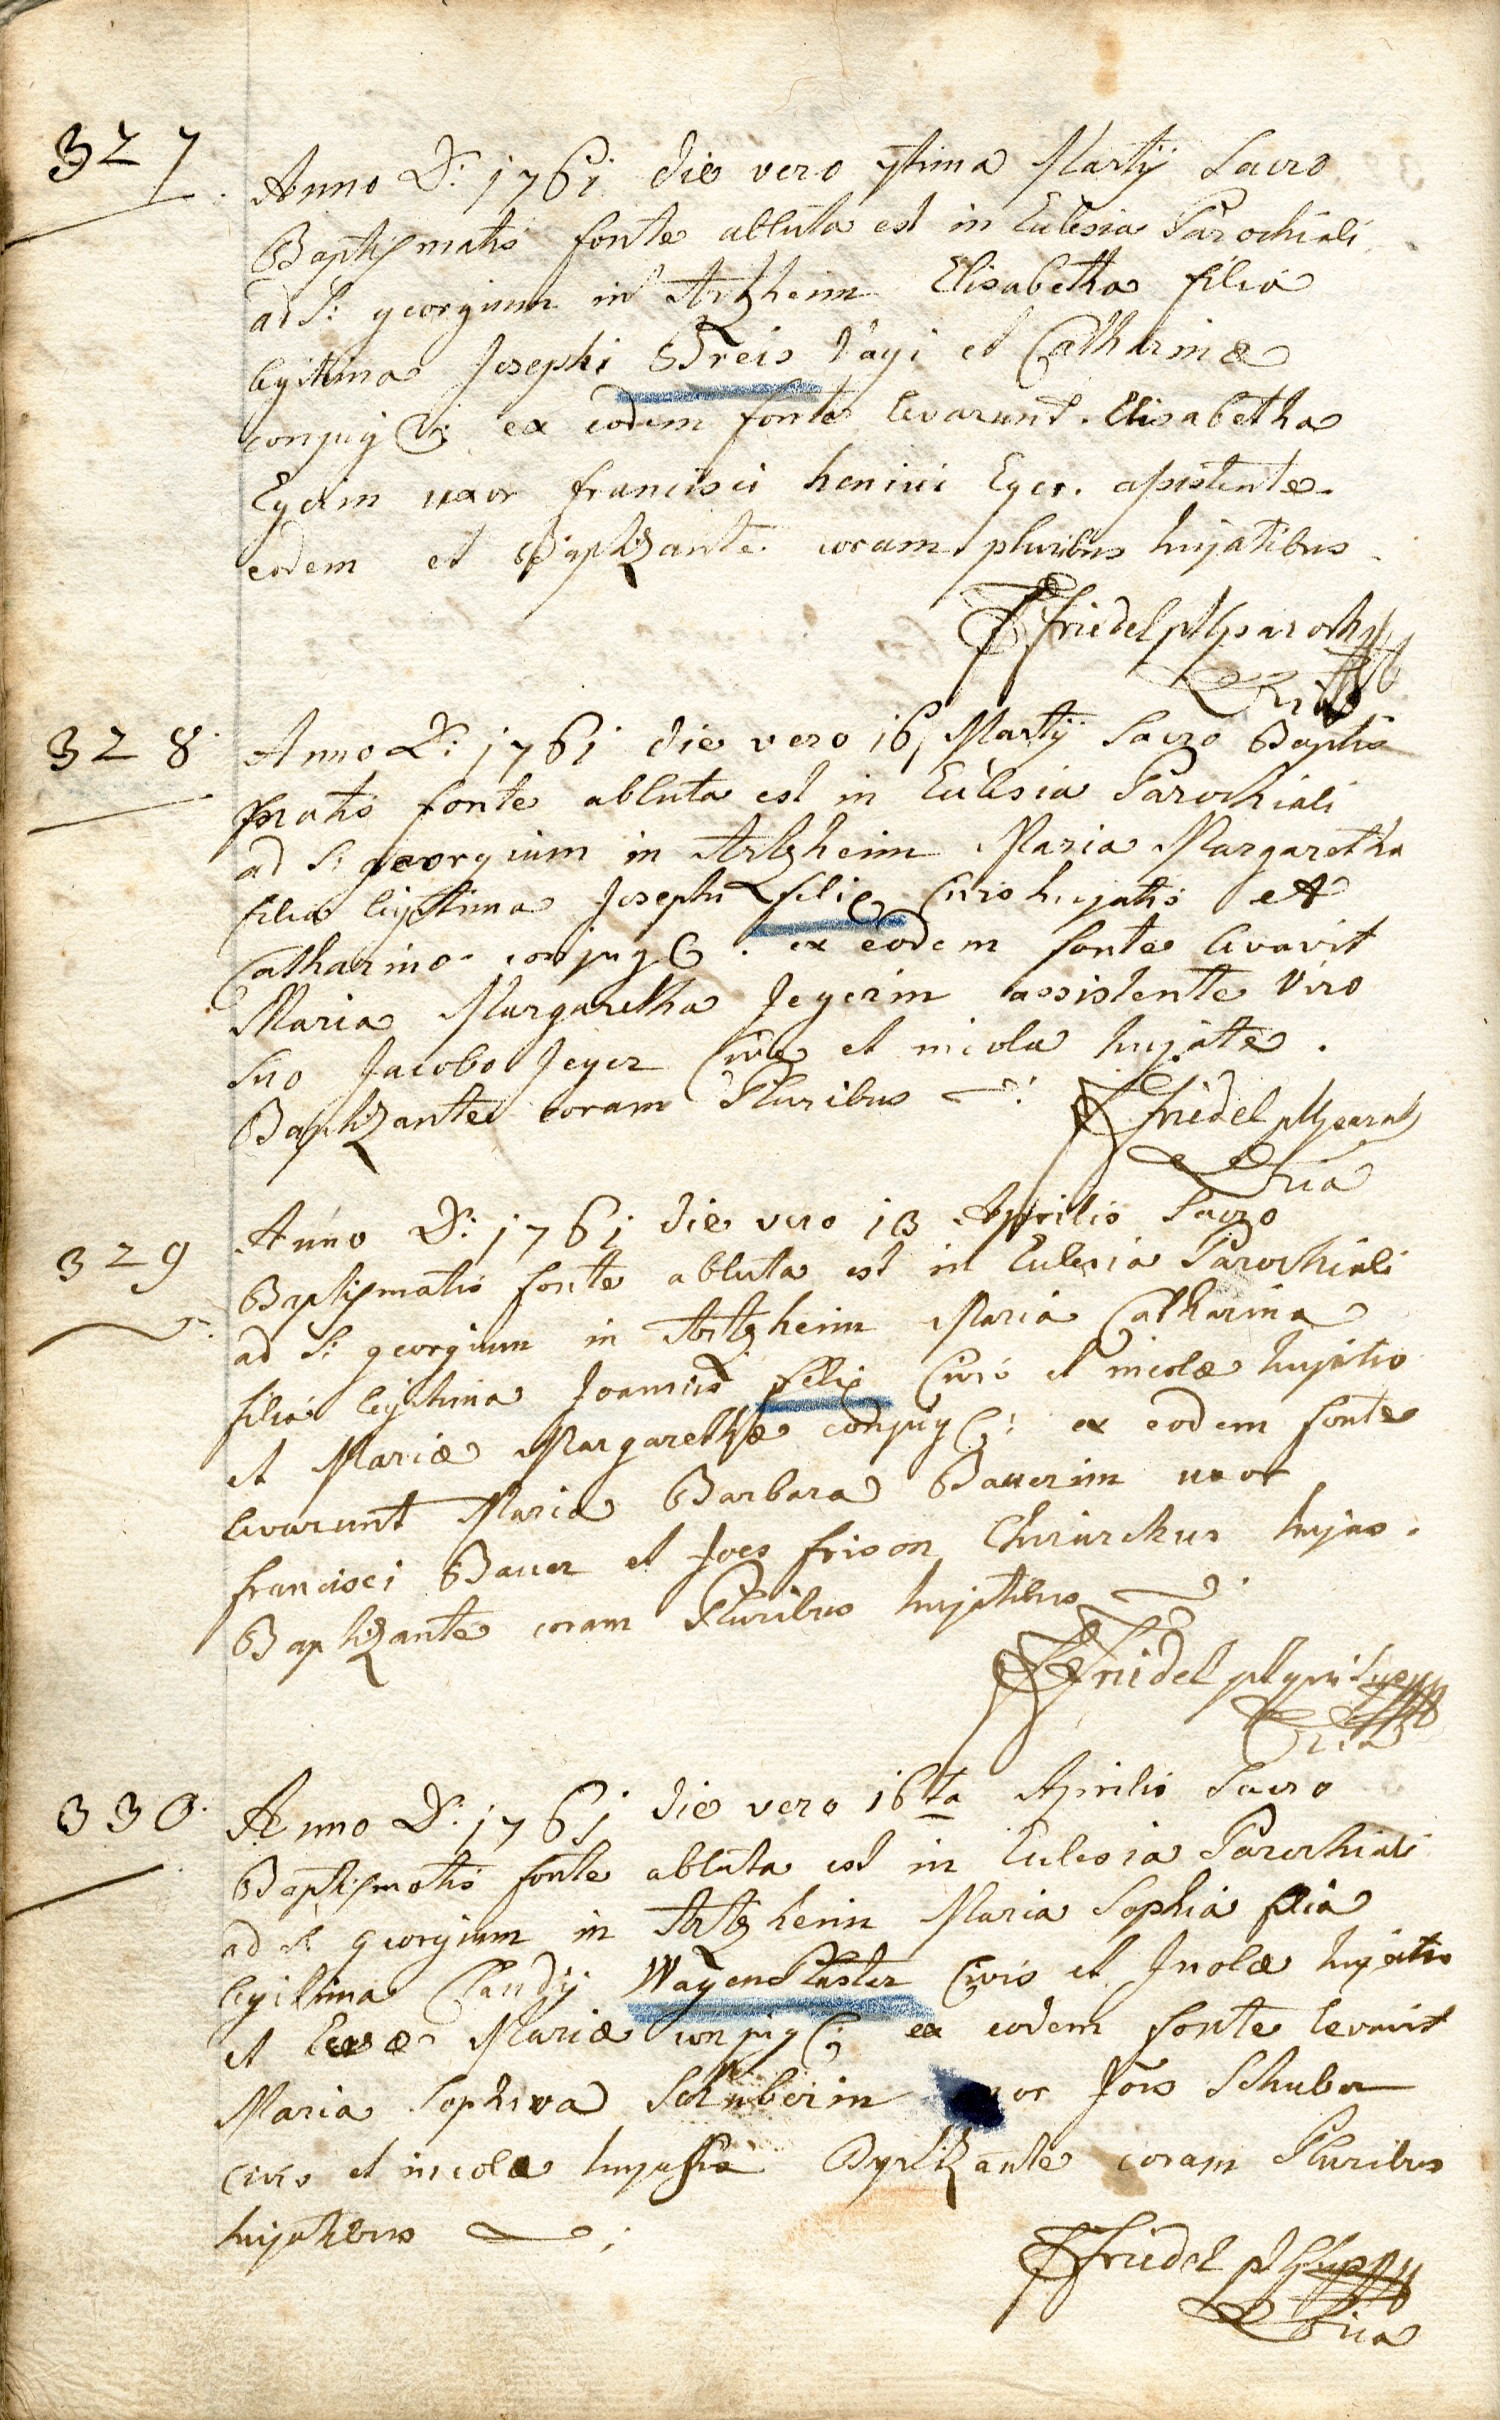 327. Anno D: 1761 die vero 7tima Martij Sacro
Baptismatis fonte abluta est in Eclesia Parochiali
ad S: georgium in Artzheim Elisabetha filia
legitima Josephi Treis Vagi et Catharinæ
conjug: ex eodem fonte levarunt. Elisabetha
Egerin uxor francisci henrici Eger. assistente
eodem et Baptizante coram pluribus hujatibus
Friedel
328. Anno D: 1761 die vero 16 Martij Sacro Baptis
matis fonte abluta est in Eclesia Parochiali
ad S: georgium in Artzheim Maria Margaretha
filia legitima Josephi felix Civis hujatis et
Catharinæ conjug. ex eodem fonte levavit
Maria Margaretha Jegerin assistente Viro
Suo Jacobo Jeger Cive et incola hujate.
Baptizante coram Pluribus
Friedel
329 Anno D: 1761 die vero 13 Aprilis Sacro
Baptismatis fonte abluta est in Eclesia Parochiali
ad S: georgium in Artzheim Maria Catharina
filia legitima Joannis felix Civis et incolæ hujatis
et Mariæ Margarethæ conjug: ex eodem fonte
levarunt Maria Barbara Bauerin uxor
francisci Bauer et Joes frison Chirurchus hujas.
Baptizante coram Pluribus hujatibus
Friedel
330. Anno D: 1761 die vero 16ta Aprilis Sacro
Baptismatis fonte abluta est in Eclesia Parochiali
ad S: georgium in Artzheim Maria Sophia filia
legitima Claudij Wagenblaster Civis et Incolæ hujatis
et Evæ Mariæ conjug: ex eodem fonte levavit
Maria Sophia Schuberin Jois Schuber
civis et incolæ hujatis Baptizante coram Pluribus
hujatibus
Friedel